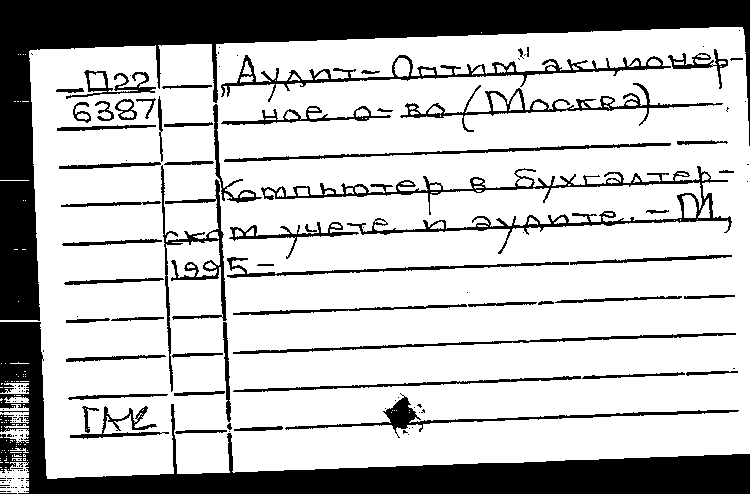 П22
6387
„Аудит-Оптим", акционер-
ное о-во (Москва)
Компьютер в бухгалтер-
ском учете и аудите. – М.,
1995–